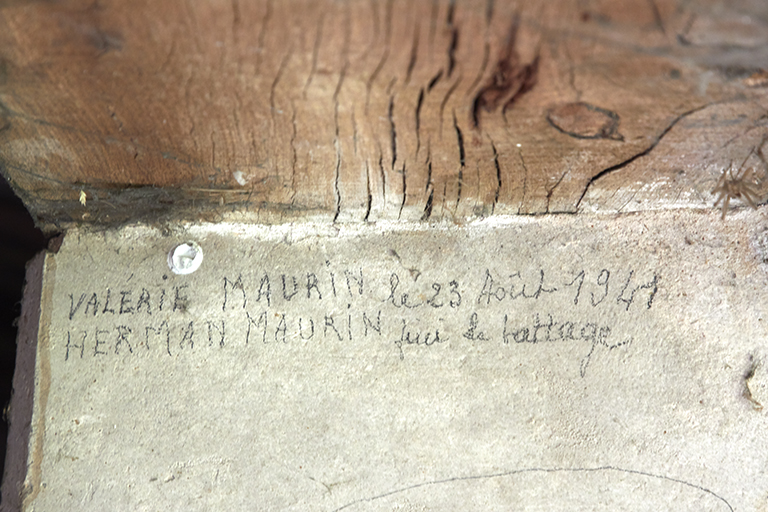 VALÉRIE MAURIN le 23 Août 1941
HERMAN MAURIN fini le battage